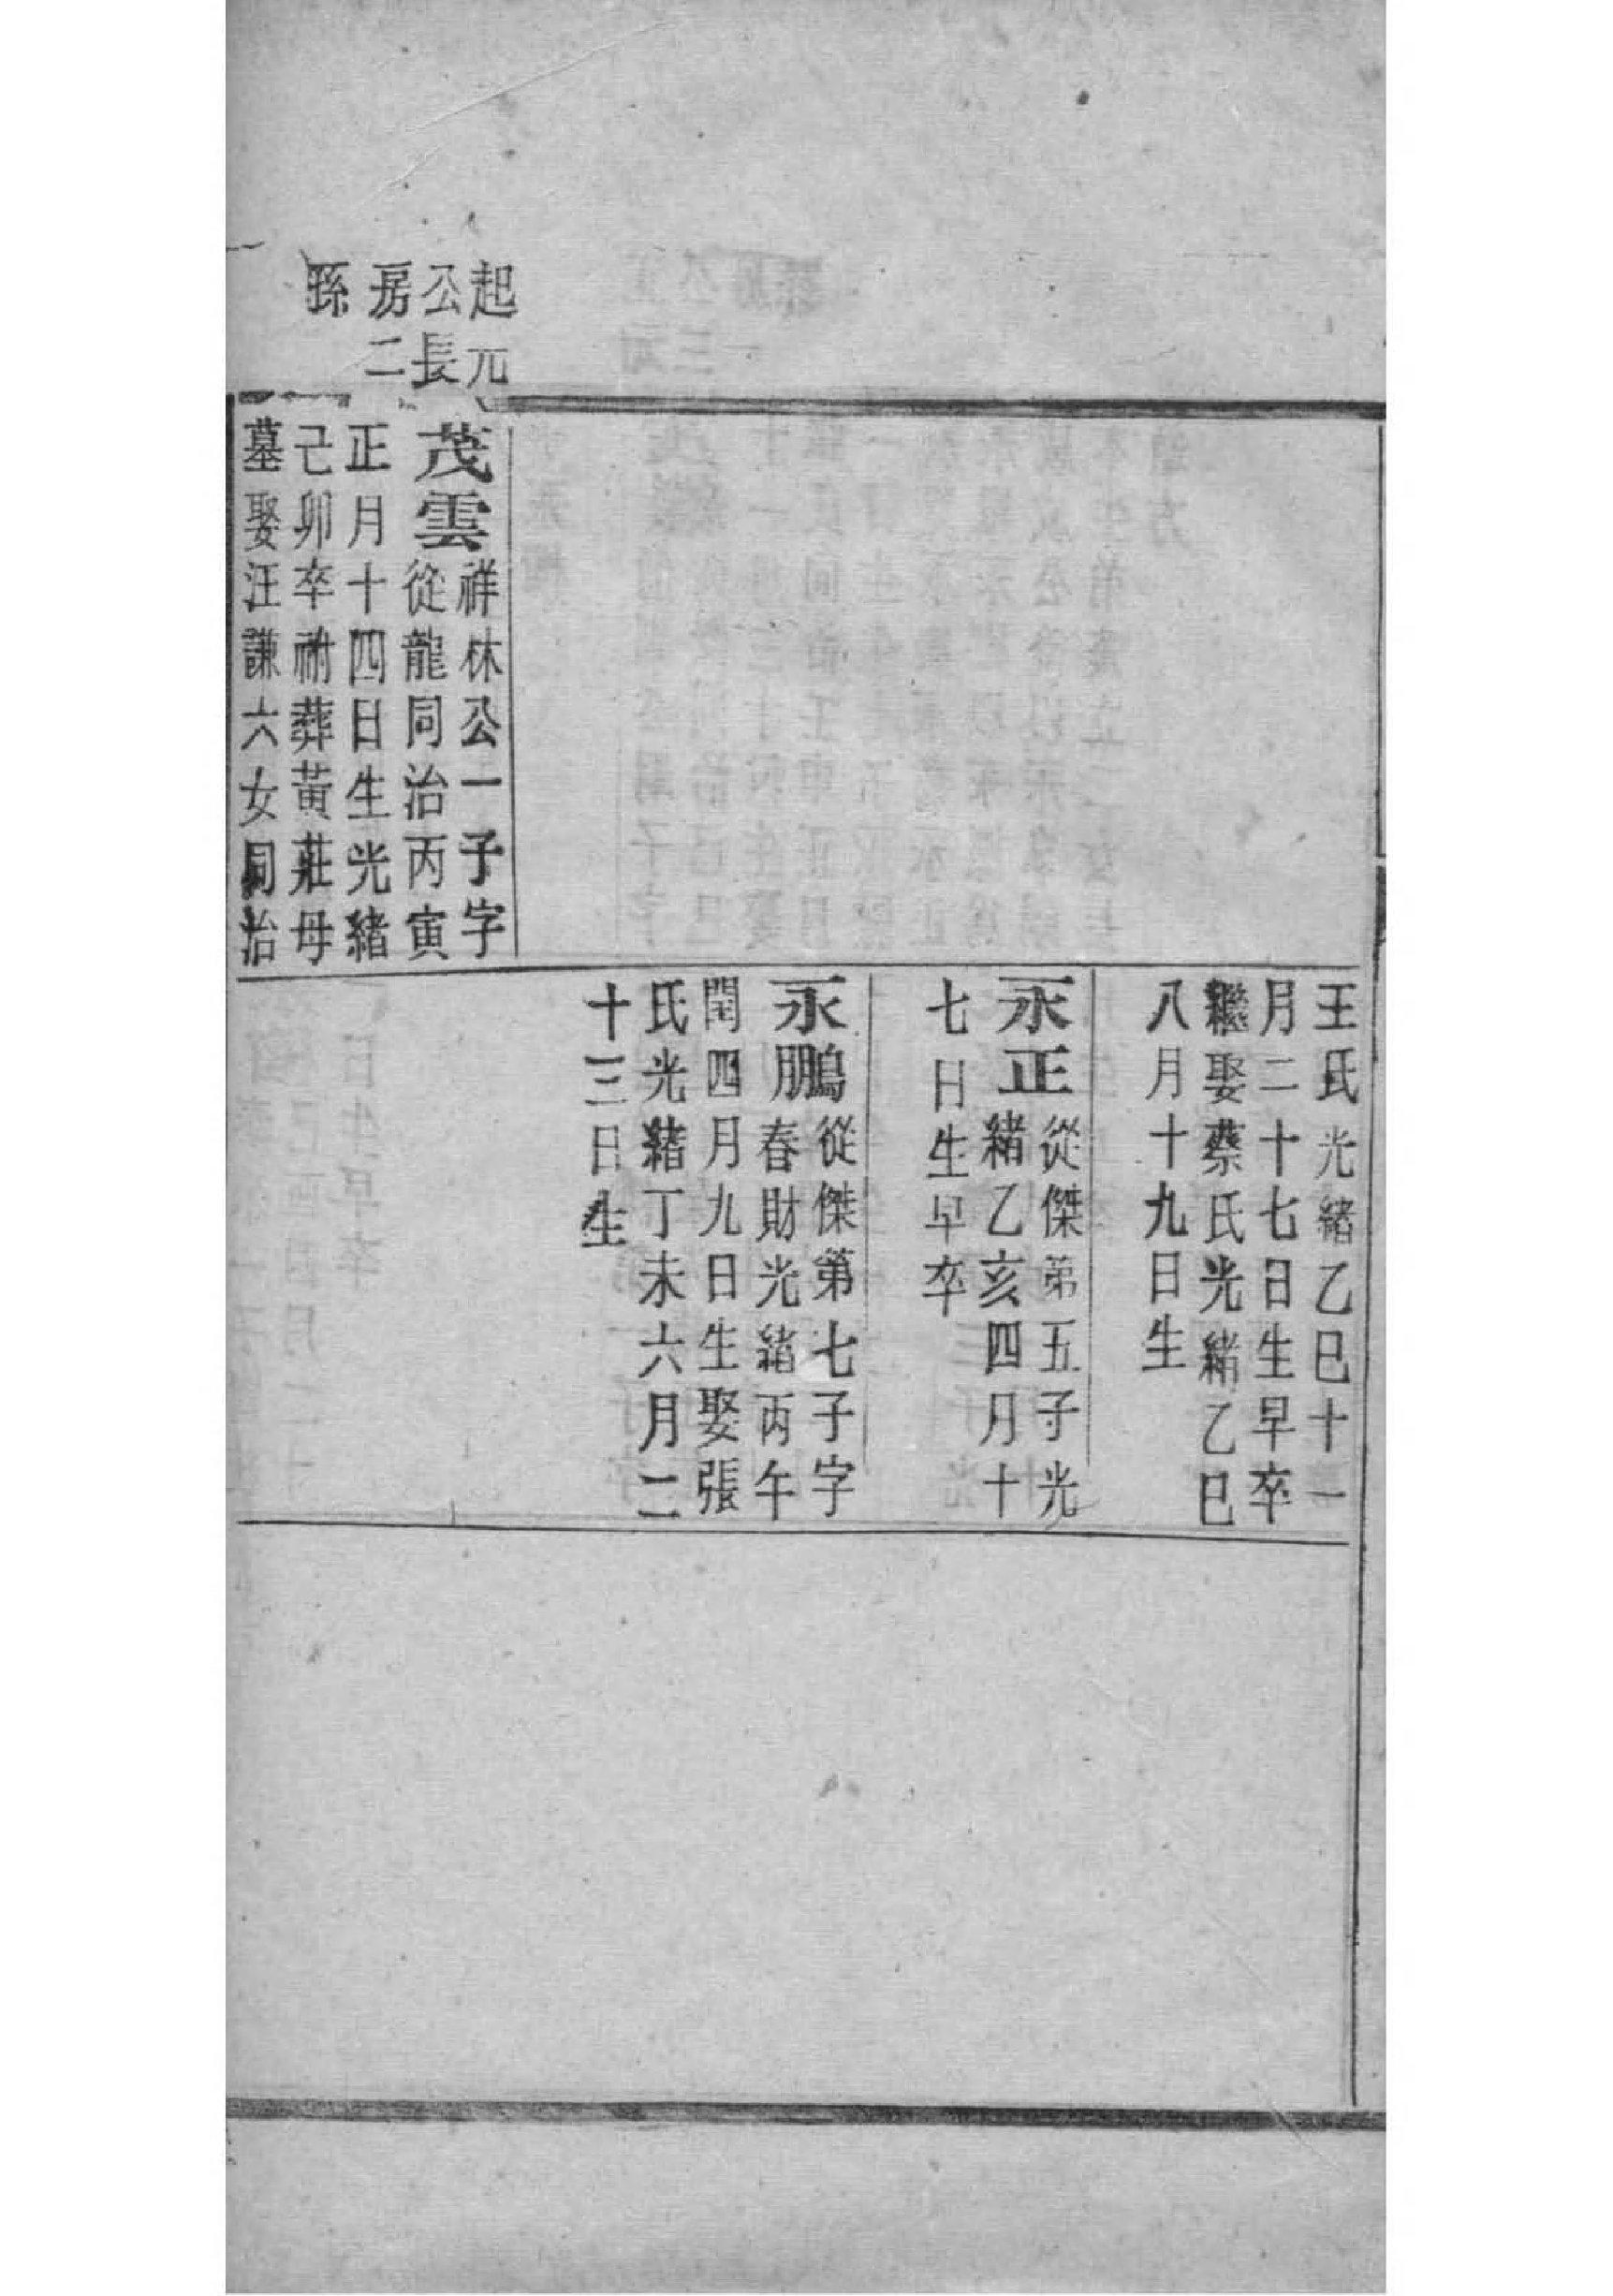 起元
公長
房二
孫
茂雲
祥林公一子字
從龍同治丙寅
正月十四日生光緒
己卯卒祔葬黃莊母
墓娶汪謙六女同治
王氏光緒乙巳十一
月二十七日生早卒
繼娶蔡氏光緒乙巳
八月十九日生
永正
從傑弟五子光
緒乙亥四月十
七日生早卒
永鵬
從傑第七子字
春財光緒丙午
閏四月九日生娶張
氏光緒丁未六月二
十三日生